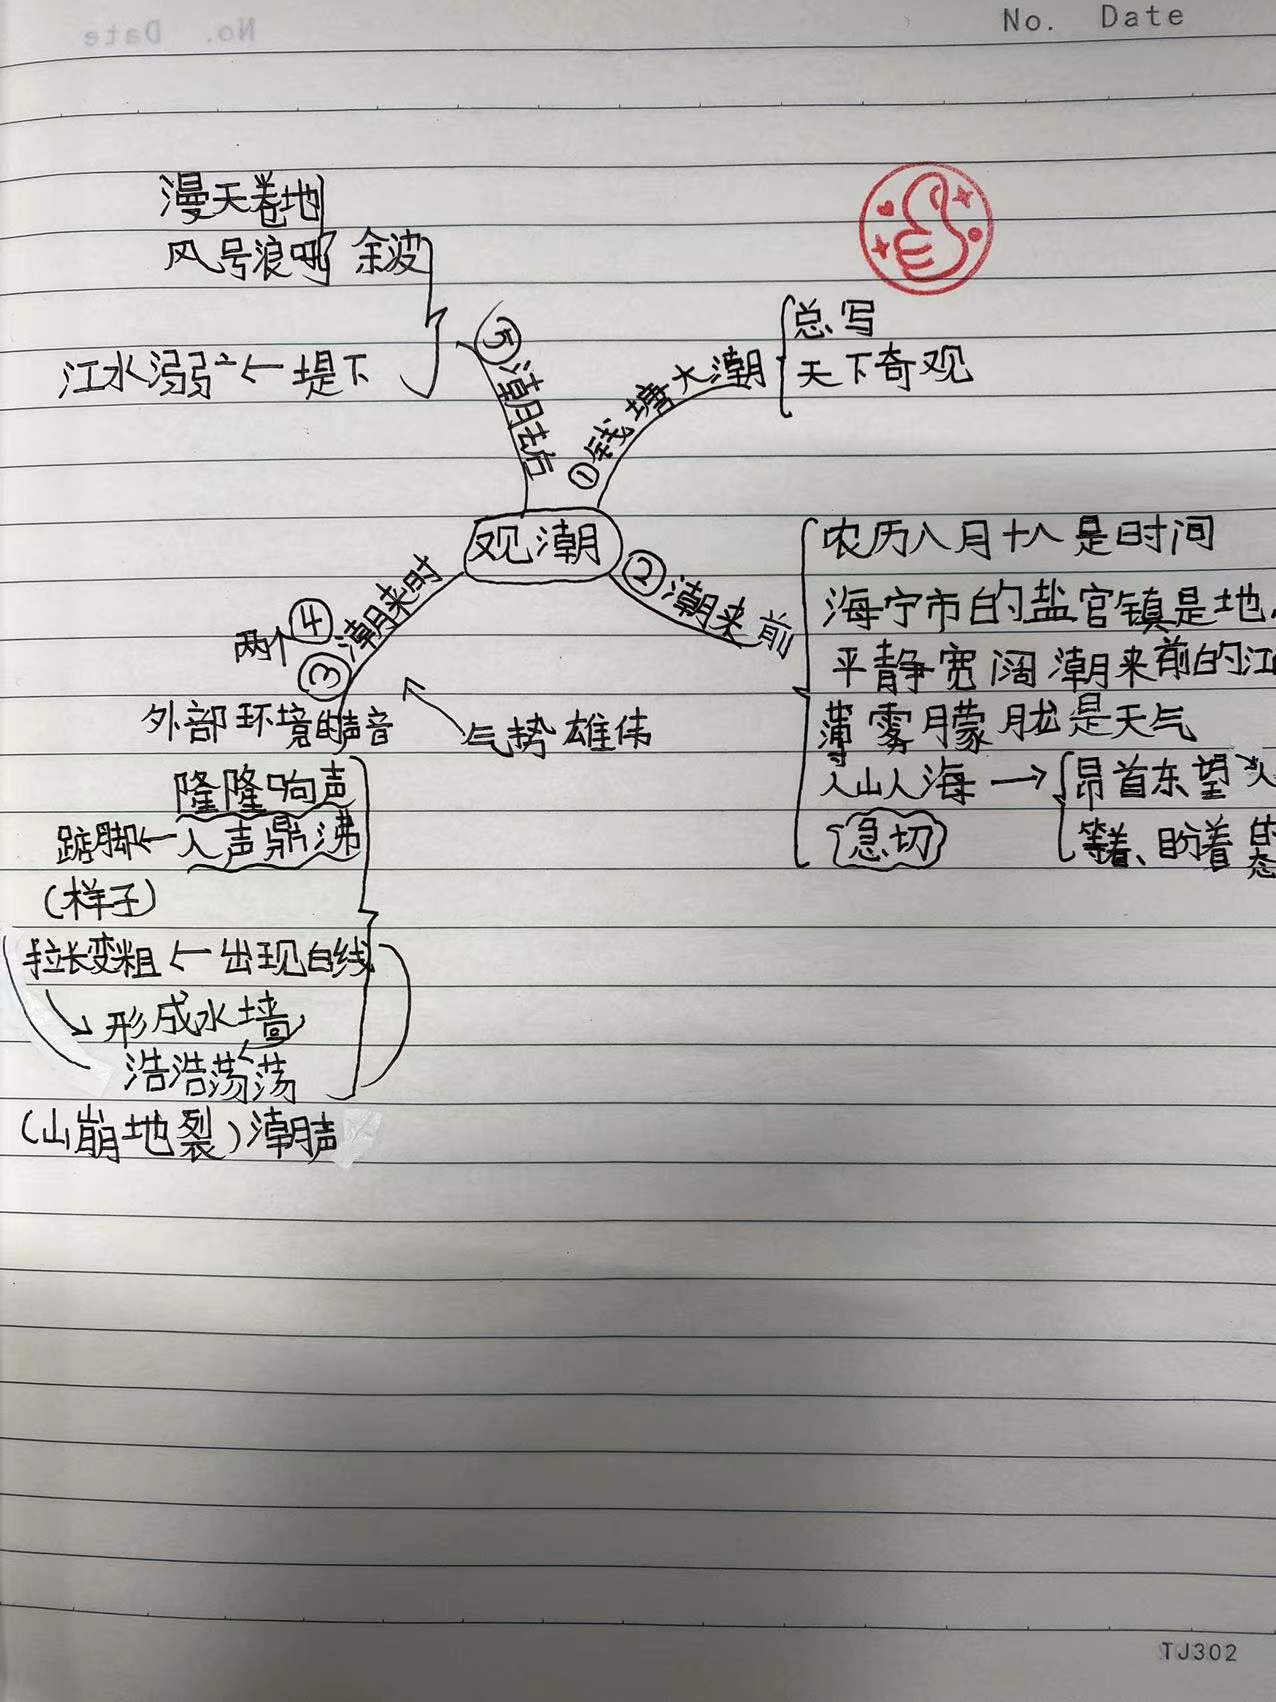 No. Date
漫天卷地
风号浪吼 余波
江水溺 ← 堤下
⑤潮去后
①钱塘大潮
总写
天下奇观
观潮
②潮来前
农历八月十八是时间
海宁市的盐官镇是地
平静宽阔潮来前的江
薄雾朦胧是天气
人山人海 → 昂首东望
等着、盼着
急切
潮来时
两个④
③
外部环境的声音
气势雄伟
隆隆响声
踮脚←人声鼎沸
(样子)
拉长变粗 ← 出现白线
形成水墙
浩浩荡荡
(山崩地裂)潮声
TJ302